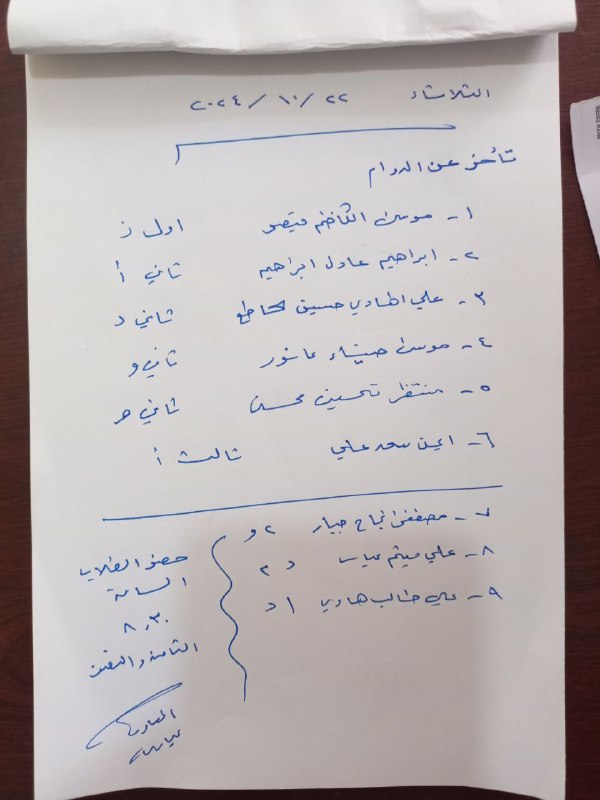 الثلاثاء ٢٢ / ١٠ / ٢٠٢٤
تأخر عن الدوام
١- موسى الكاظم اول ز
٢- ابراهيم عادل ابراهيم ثاني أ
٣- علي الهادي حسين كاطع ثاني د
٤- موسى ضياء عاشور ثاني و
٥- منتظر تحسين محسن ثاني هـ
٦- ايمن سعد علي ثالث أ
٧- مصطفى نجاح جبار ٢ و
٨- علي ميثم عباس ٢ د
٩- علي طالب هادي ١ د
حضر الطلاب
الساعة
٨,٣٠
الثامنة والنصف
المعاون